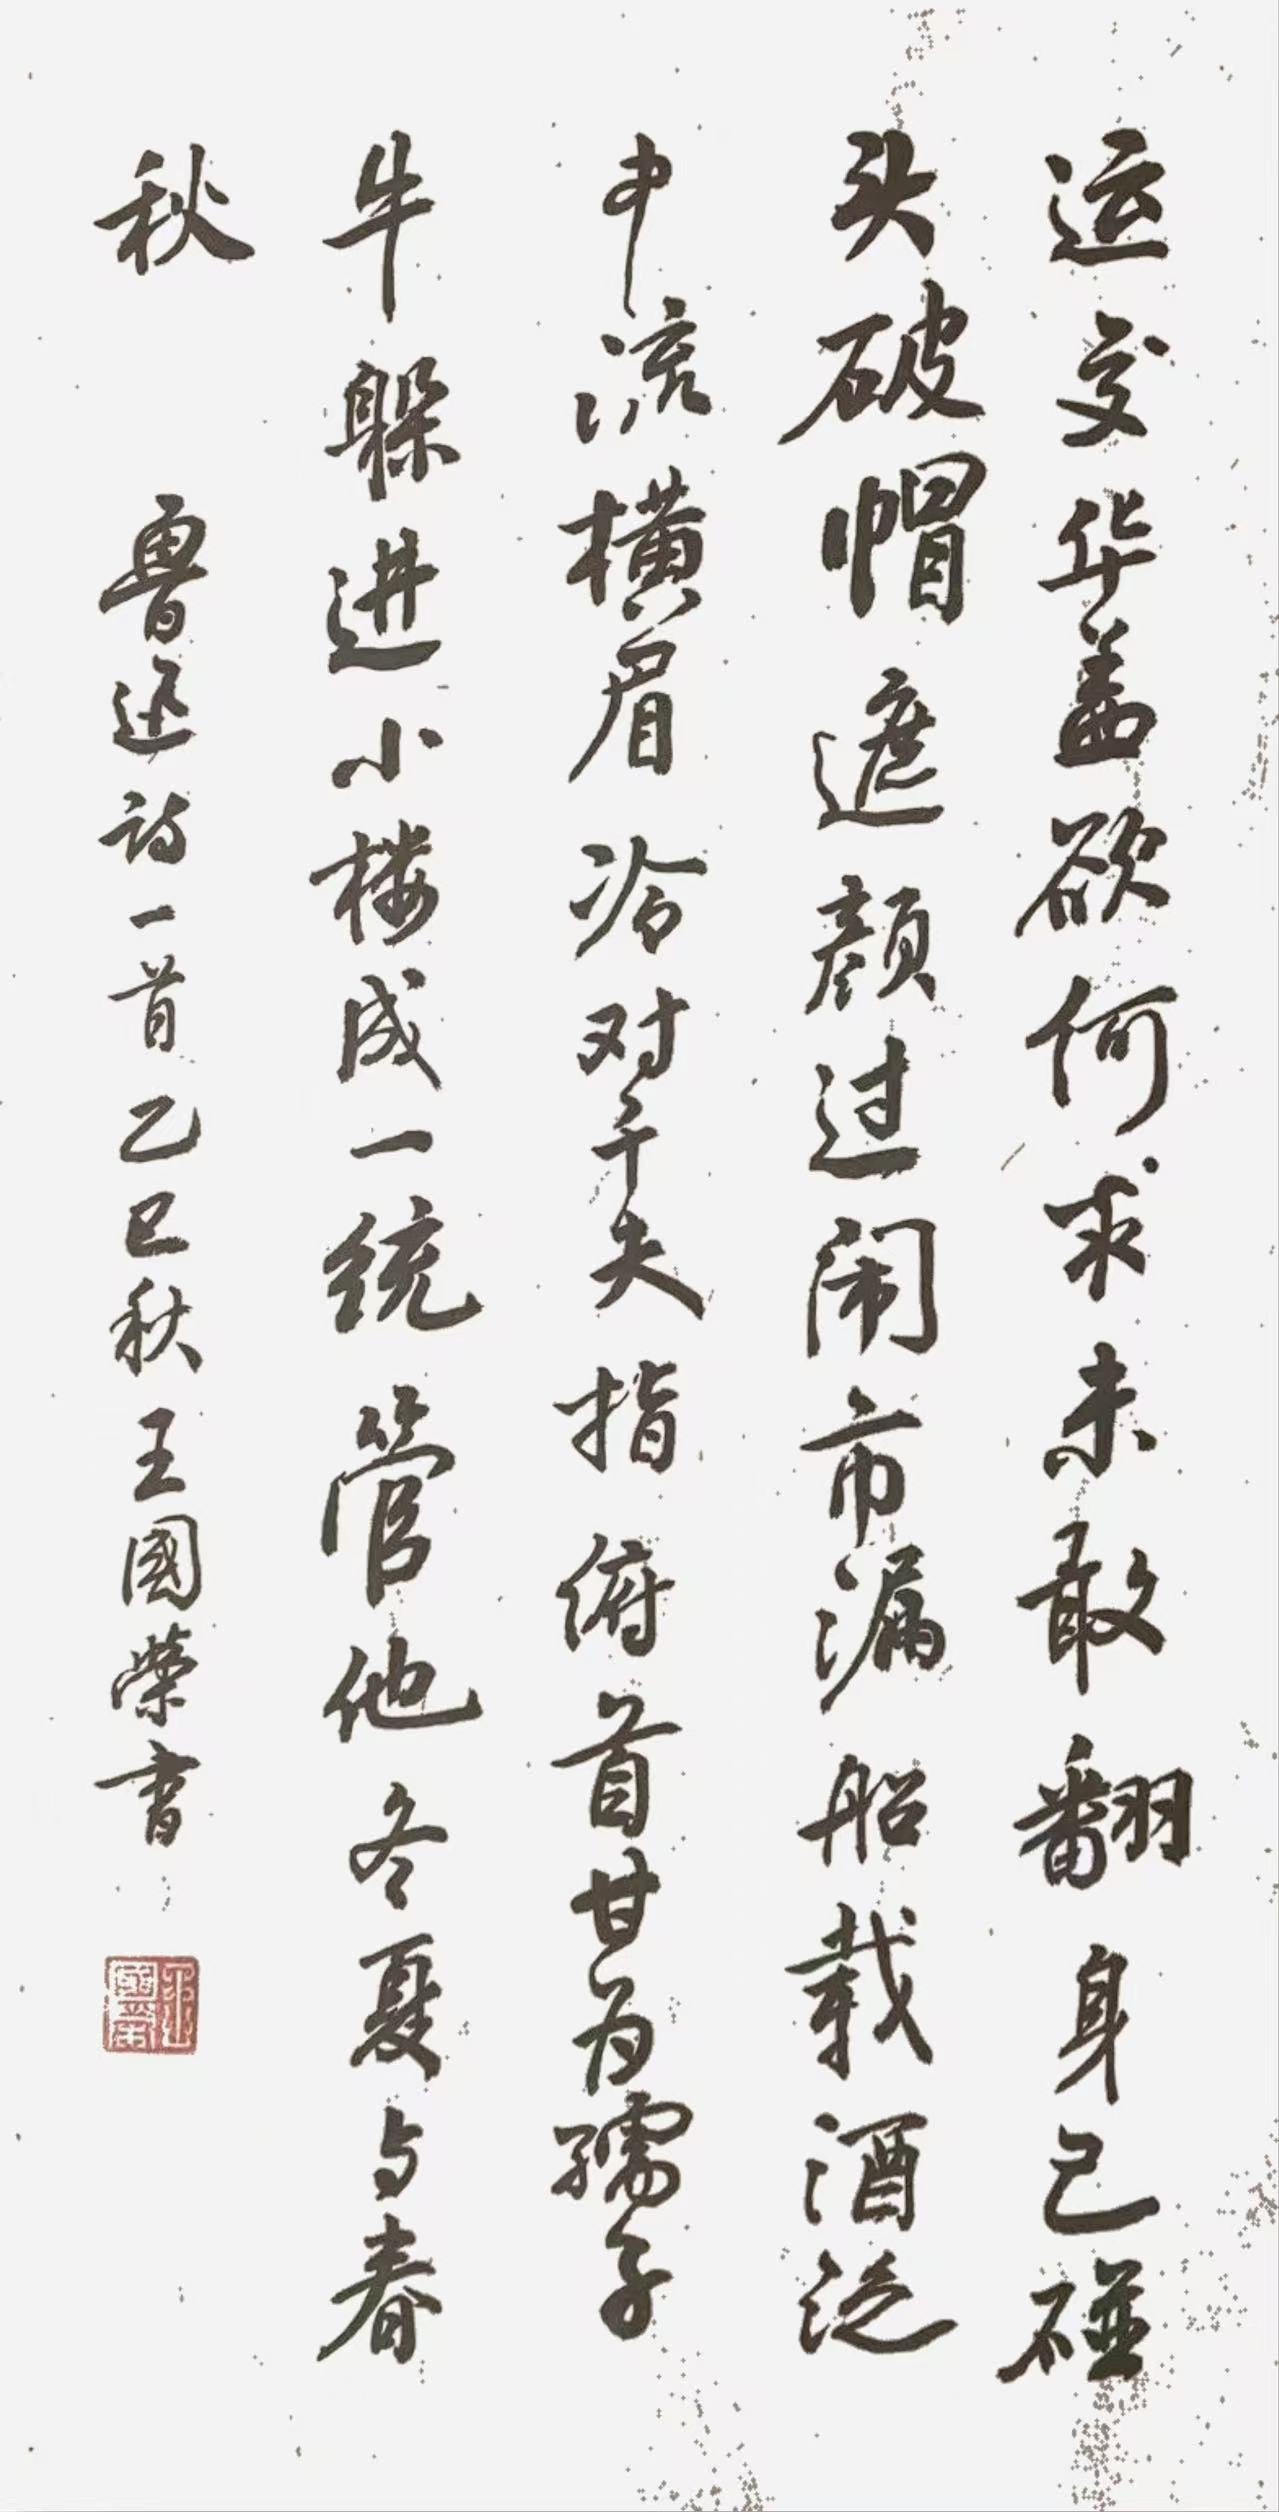 运交华盖欲何求未敢翻身已碰
头破帽遮颜过闹市漏船载酒泛
中流横眉冷对千夫指俯首甘为孺子
牛躲进小楼成一统管他冬夏与春
秋
鲁迅诗一首乙巳秋王國荣书